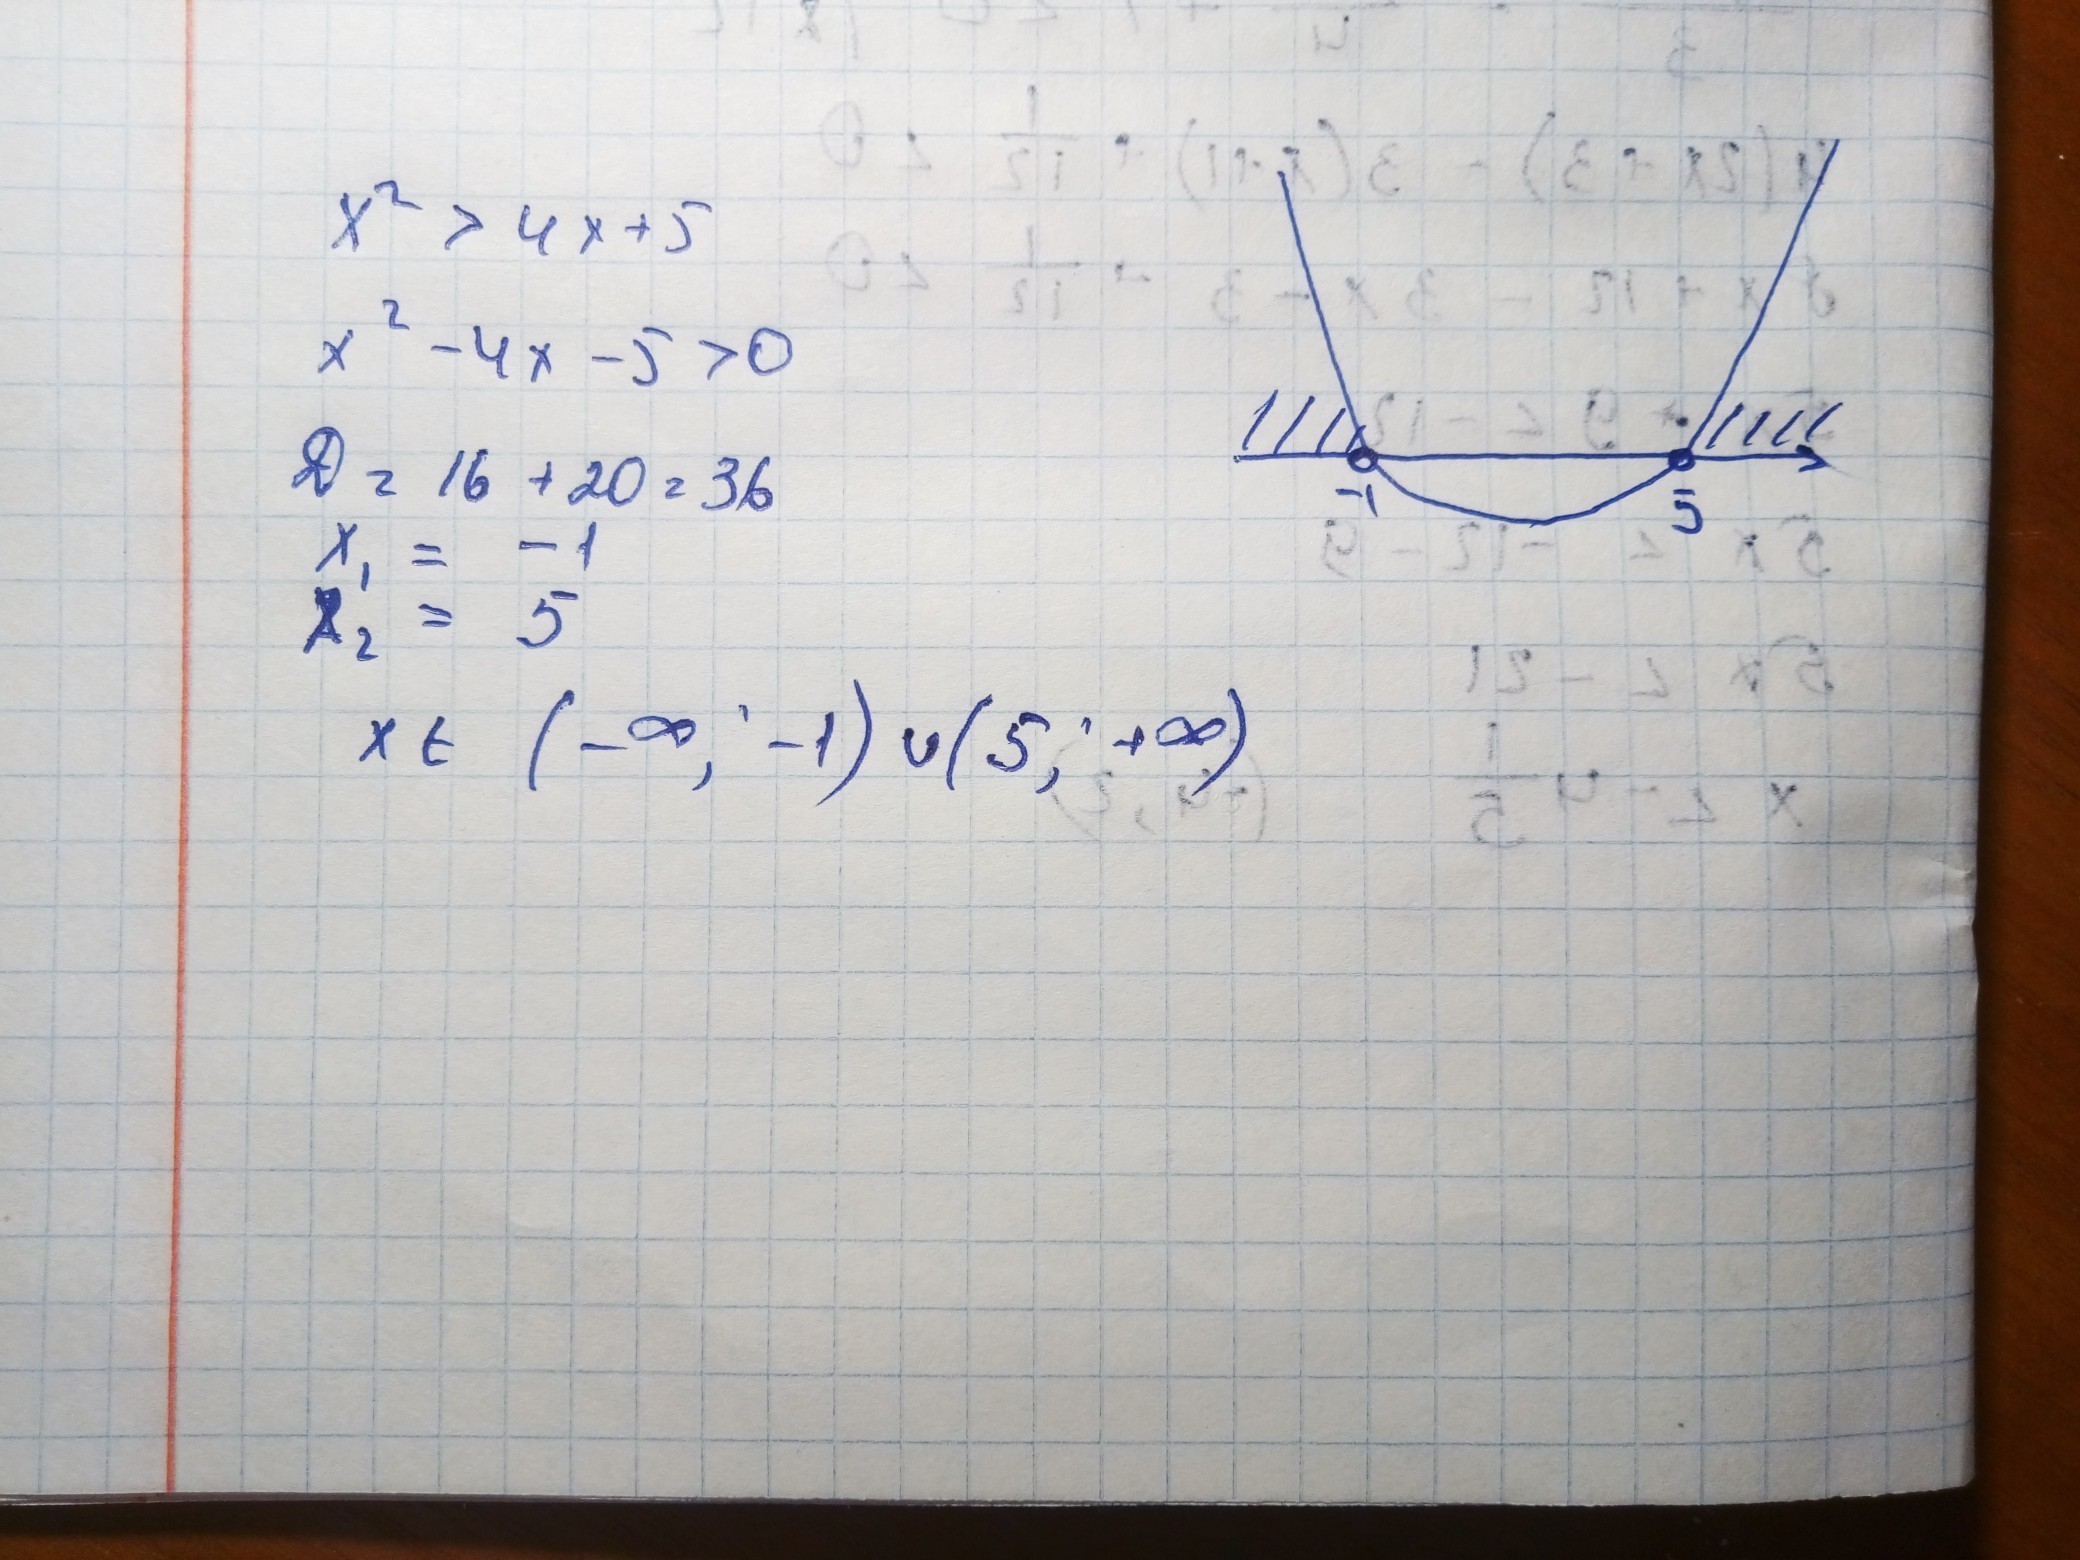 x² > 4x+5
x² -4x -5 >0
D = 16 +20 = 36
x₁ = -1
x₂ = 5
x ∈ (-∞; -1) ∪ (5; +∞)
-1 5